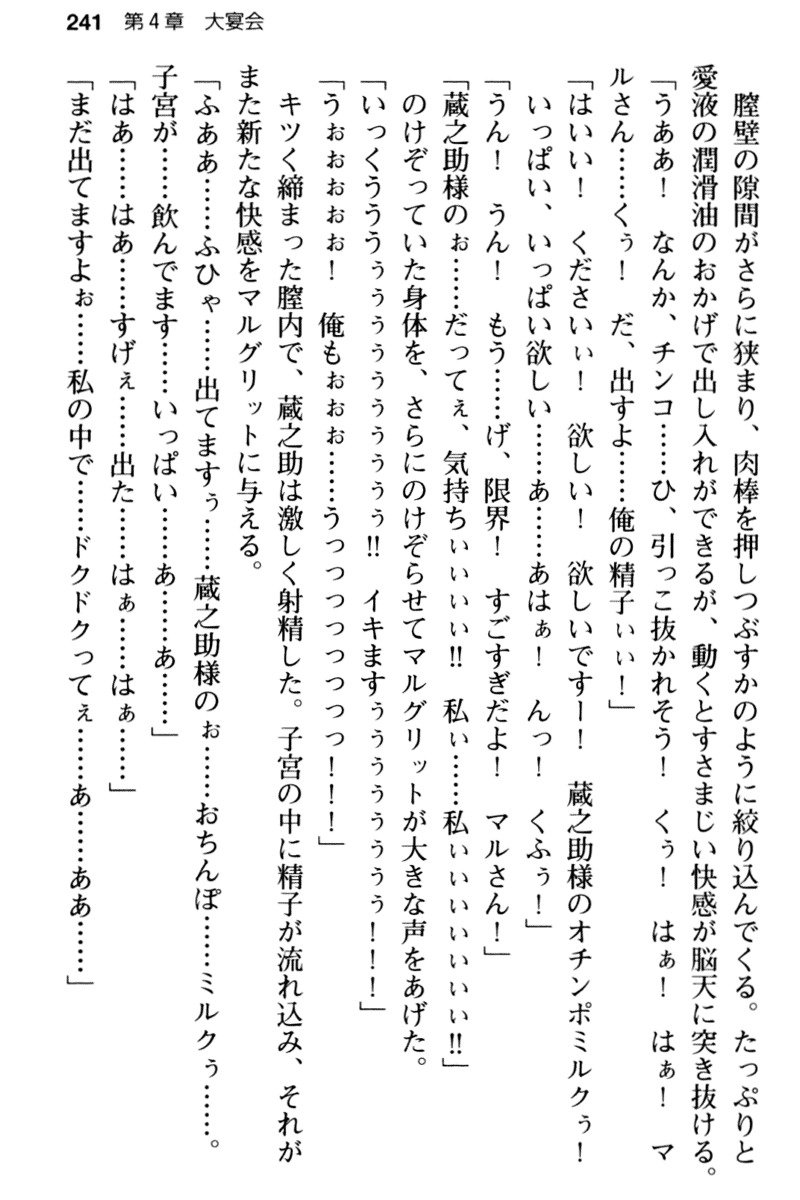 241 第4章 大宴会
膣壁の隙間がさらに狭まり、肉棒を押しつぶすかのように絞り込んでくる。たっぷりと
愛液の潤滑油のおかげで出し入れができるが、動くとすさまじい快感が脳天に突き抜ける。
「うああ！　なんか、チンコ……ひ、引っこ抜かれそう！　くぅ！　はぁ！　はぁ！　マ
ルさん……くぅ！　だ、出すよ……俺の精子ぃぃ！」
「はいい！　くださいぃ！　欲しい！　欲しいですー！　蔵之助様のオチンポミルクぅ！
いっぱい、いっぱい欲しい……あ……あはぁ！　んっ！　くふぅ！」
「うん！　うん！　もう……げ、限界！　すごすぎだよ！　マルさん！」
「蔵之助様のぉ……だってぇ、気持ちぃぃぃぃ!!　私ぃ……私ぃぃぃぃぃぃぃ!!」
のけぞっていた身体を、さらにのけぞらせてマルグリットが大きな声をあげた。
「いっくうううぅぅぅぅぅぅぅぅぅぅ!!　イキますぅぅぅぅぅぅぅぅ！！！」
「うぉぉぉぉぉ！　俺もぉぉぉ……うっっっっっっっっ！！！」
キツく締まった膣内で、蔵之助は激しく射精した。子宮の中に精子が流れ込み、それが
また新たな快感をマルグリットに与える。
「ふああ……ふひゃ……出てますぅ……蔵之助様のぉ……おちんぽ……ミルクぅ……。
子宮が……飲んでます……いっぱい……あ……あ……」
「はあ……はあ……すげぇ……出た……はぁ……はぁ……」
「まだ出てますよぉ……私の中で……ドクドクってぇ……あ……ああ……」